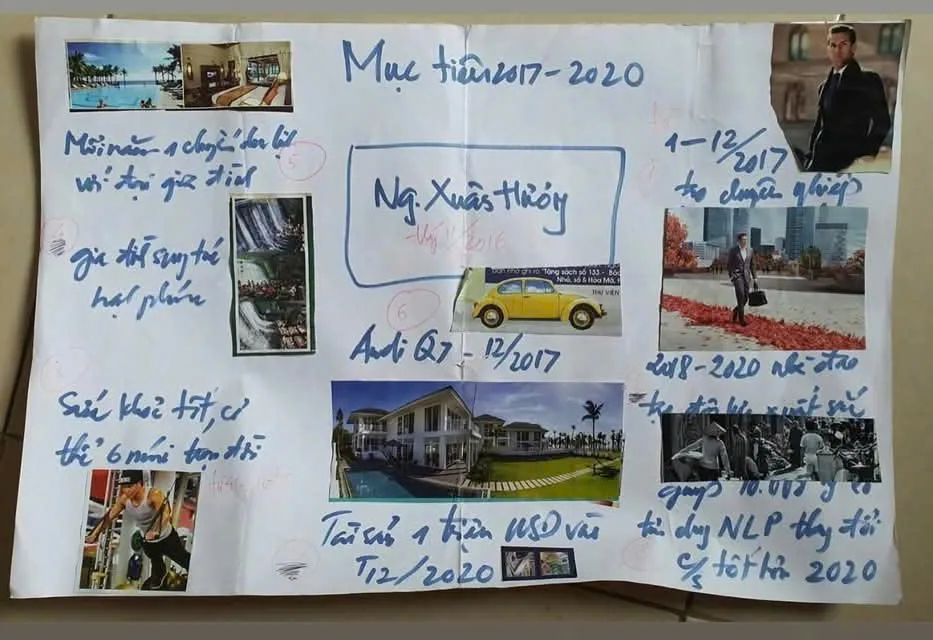 Mục tiêu 2017-2020
Mỗi năm 1 chuyến du lịch
với đại gia đình
gia đình sung túc
hạnh phúc
Sức khoẻ tốt, cơ
thể 6 múi trọn đời
Ng. Xuân
2016
Tặng sách số 133 -
Nhỏ, số 6 Hòa Mã,
THƯ VIỆN
5
6
Audi Q7 - 12/2017
Tài sản 1 triệu USD vào
T12/2020
1-12/2017
tạo chuyên nghiệp
2018-2020 nhà đào
tạo xuất sắc
giúp 10.000
tư duy NLP thay đổi
c/s tốt hơn 2020